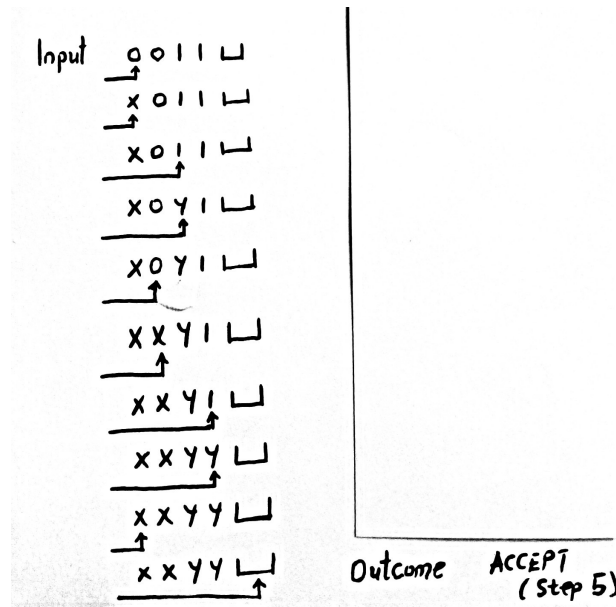 Input 0 0 1 1 ⊔
X 0 1 1 ⊔
X 0 1 1 ⊔
X 0 Y 1 ⊔
X 0 Y 1 ⊔
X X Y 1 ⊔
X X Y 1 ⊔
X X Y Y ⊔
X X Y Y ⊔
X X Y Y ⊔
Outcome ACCEPT
(Step 5)